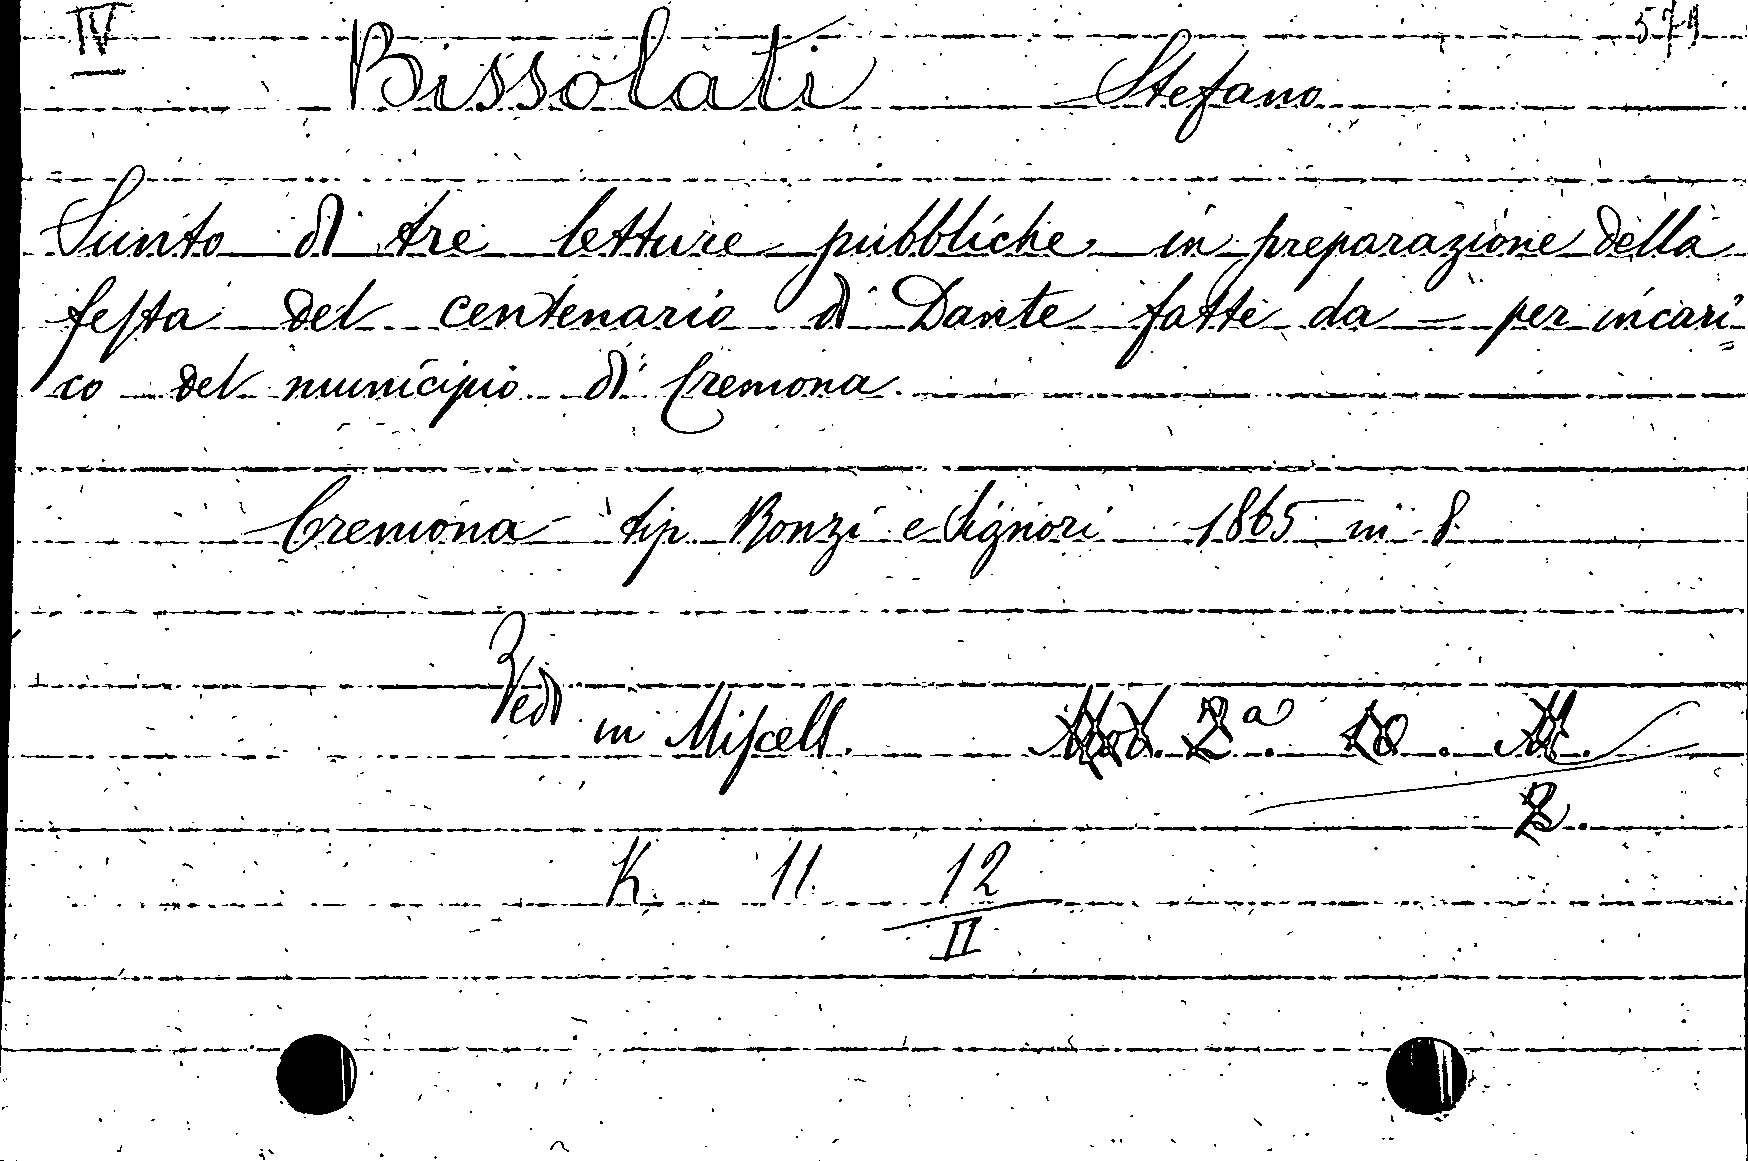 IV 579
Bissolati Stefano
Sunto di tre letture pubbliche in preparazione della
festa del centenario di Dante fatte da – per incari=
co del municipio di Cremona.
Cremona – tip Ronzi e Signori 1865 in 8.
Vedi in Miscell. 2ª. 10. M.
2.
K 11. 12
II